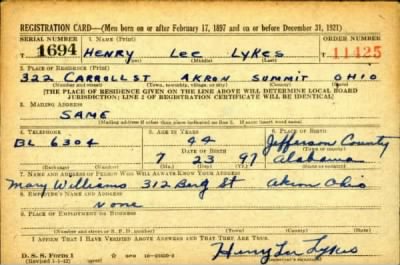 REGISTRATION CARD—(Men born on or after February 17, 1897 and on or before December 31, 1921)
SERIAL NUMBER 1. NAME (Print) ORDER NUMBER
T 1694 HENRY LEE LYKES T 11425
(First) (Middle) (Last)
2. PLACE OF RESIDENCE (Print)
322 CARROLL ST AKRON SUMMIT OHIO
(Number and street) (Town, township, village, or city) (County) (State)
[THE PLACE OF RESIDENCE GIVEN ON THE LINE ABOVE WILL DETERMINE LOCAL BOARD
JURISDICTION; LINE 2 OF REGISTRATION CERTIFICATE WILL BE IDENTICAL]
3. MAILING ADDRESS
SAME
(Mailing address if other than place indicated on line 2. If same insert word same)
4. TELEPHONE 5. AGE IN YEARS 6. PLACE OF BIRTH
BL 6304 44 Jefferson County
DATE OF BIRTH (Town or county)
7 23 97 Alabama
(Exchange) (Number) (Mo.) (Day) (Yr.) (State or country)
7. NAME AND ADDRESS OF PERSON WHO WILL ALWAYS KNOW YOUR ADDRESS
Mary Williams 312 Berg St Akron Ohio
8. EMPLOYER'S NAME AND ADDRESS
None
9. PLACE OF EMPLOYMENT OR BUSINESS
(Number and street or R. F. D. number) (Town) (County) (State)
I AFFIRM THAT I HAVE VERIFIED ABOVE ANSWERS AND THAT THEY ARE TRUE.
D. S. S. Form 1 Henry Lee Lykes
(Revised 1-5-42) (Registrant's signature)